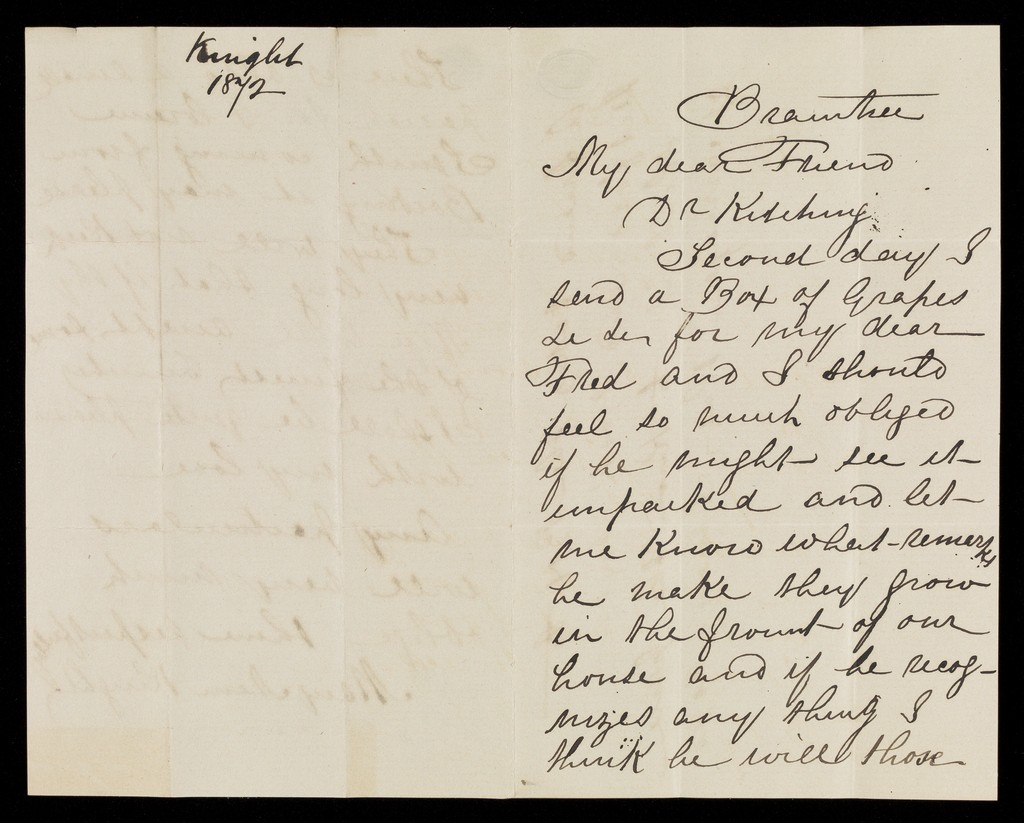 Knight
1872
Braintree
My dear Friend
Dr Kitching
Second day I
send a Box of Grapes
for my dear
Fred and I should
feel so much obliged
if he might see it
unpacked and let
me Know what remarks
he make they grow
in the frount of our
house and if he recog-
nizes any thing I
think he will those